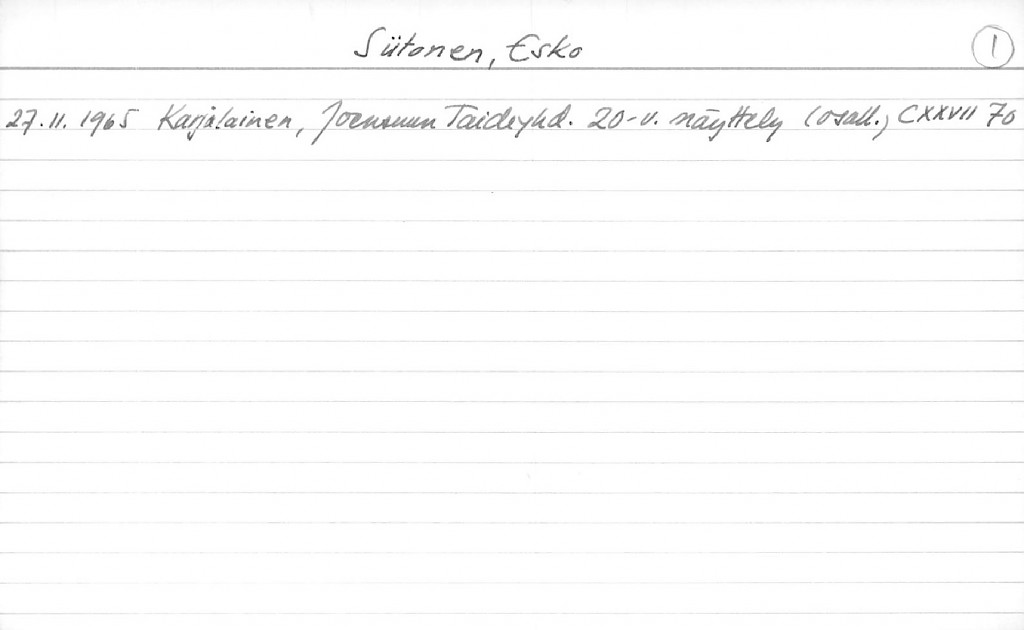 Siitonen, Esko 1
27.11.1965 Karjalainen, Joensuun Taideyhd. 20-v. näyttely (osall.) CXXVII 70